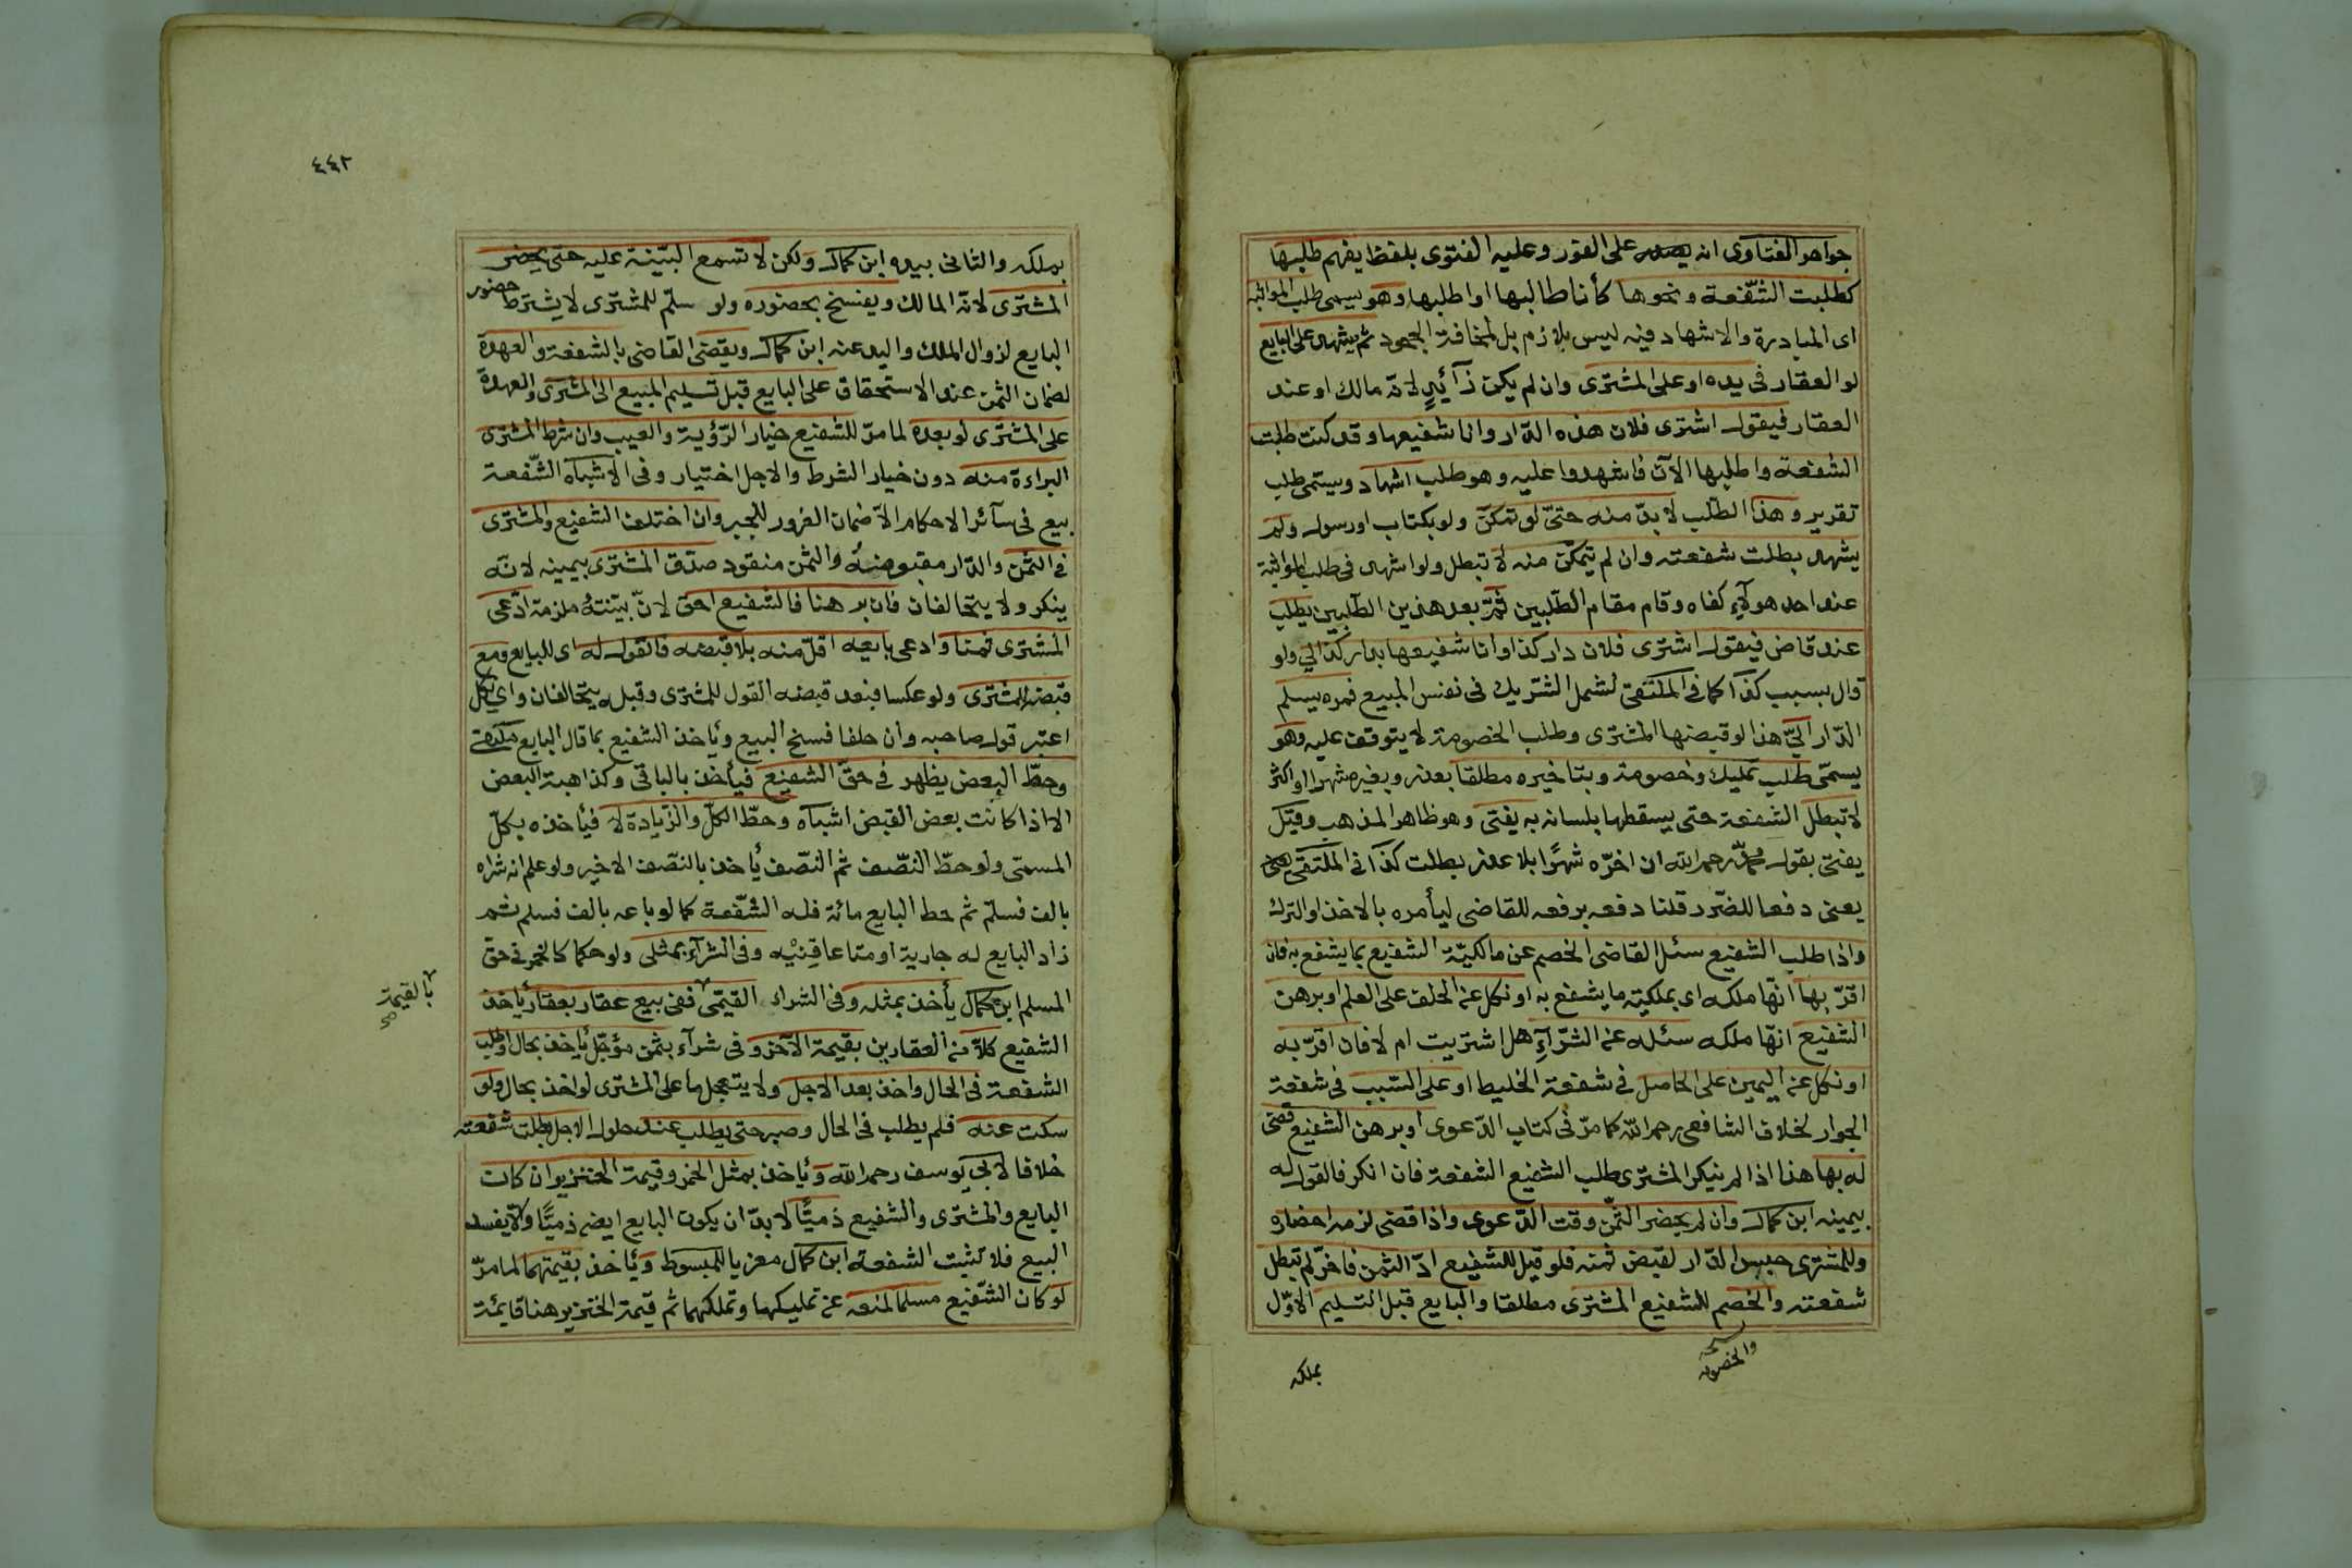 جواهر الفتاوى انه يصدر على الفور وعليه الفتوى بلفظ يفهم طلبها
كطلبت الشّفعة ونحوها كأنا طالبها او اطلبها وهو يسمى طلب المواثبة
اى المبادرة والاشهاد فيه ليس بلازم بل لمخافة الجحود ثم يشهد على البايع
لو العقار فى يده او على المشترى وان لم يكن ذا يد لانه مالك او عند
العقار فيقول اشترى فلان هذه الدّار وانا شفيعها وقد كنت طلبت
الشفعة واطلبها الآن فاشهدوا عليه وهو طلب اشهاد ويسمّى طلب
تقرير وهذا الطّلب لا بدّ منه حتىّ لو تمكّن ولو بكتاب او رسول ولم
يشهد بطلت شفعته وان لم يتمكّن منه لا تبطل ولو اشهد فى طلب المواثبة
عند احد هولآء كفاه وقام مقام الطّلبين ثمّ بعد هذين الطّلبين يطلب
عند قاض فيقول اشترى فلان دار كذا وانا شفيعها بدار كذا لي ولو
قال بسبب كذا كما فى الملتقى لشمل الشّريك فى نفس المبيع فمره يسلم
الدّار اليّ هذا لو قبضها المشترى وطلب الخصومة لا يتوقف عليه وهو
يسمّى طلب تمليك وخصومة وبتاخيره مطلقا بعذر وبغيره شهرا او اكثر
لا تبطل الشفعة حتى يسقطها بلسانه به يفتى وهو ظاهر المذهب وقيل
يفتى بقول محمّد رحمه الله ان اخّره شهرًا بلا عذر بطلت كذا فى الملتقى
يعنى دفعا للضّرر قلنا دفعه برفعه للقاضى ليأمره بالاخذ او الترك
واذا طلب الشفيع سئل القاضى الخصم عن مالكيّة الشفيع بما يشفع به فان
اقرّ بها انّها ملكه اى بملكيّة ما يشفع به او نكل عن الحلف على العلم او برهن
الشفيع انّها ملكه سئله عن الشّرآءِ هل اشتريت ام لا فان اقرّ به
او نكل عن اليمين على الحاصل فى شفعة الخليط او على السّبب فى شفعة
الجوار لخلاف الشافعى رحمه الله كما مرّ فى كتاب الدّعوى او برهن الشفيع قضى
له بها هذا اذا لم ينكر المشترى طلب الشفيع الشفعة فان انكر فالقول له
بيمينه ابن كمال وان لم يحضر الثّمن وقت الدّعوى واذا قضى لزمه احضاره
وللمشترى حبس الدّار لقبض ثمنه فلو قيل للشفيع ادّ الثمن فاخّر لم تبطل
شفعته والخصم للشفيع المشترى مطلقا والبايع قبل التسليم الاوّل
بملكه
٤٤٢
بملكه والثانى بيده ابن كمال ولكن لا تسمع البيّنة عليه حتى يحضر
المشترى لانّه المالك ويفسخ بحضوره ولو سلّم للمشترى لا يشترط حضور
البايع لزوال الملك واليد عنه ابن كمال ويقضى القاضى بالشفعة والعهدة
لضمان الثمن عند الاستحقاق على البايع قبل تسليم المبيع الى المشترى والعهدة
على المشترى لو بعده لما مرّ للشفيع خيار الرّؤية والعيب وان شرط المشترى
البراءة منه دون خيار الشرط والاجل اختيار وفى الاشباه الشّفعة
بيع فى سآئر الاحكام الاّ ضمان الغرور للجبر وان اختلف الشفيع والمشترى
فى الثمن والدّار مقبوضة والثمن منقود صدّق المشترى بيمينه لانّه
ينكر ولا يتحالفان فان برهنا فالشفيع احق لانّ بيّنتهُ ملزمة ادّعى
المشترى ثمنا وادعى بايعه اقلّ منه بلا قبضه فالقول له اى للبايع ومع
قبضه للمشترى ولو عكسا فبعد قبضه القول للمشترى وقبله يتحالفان واي نكل
اعتبر قول صاحبه وان حلفا فسخ البيع ويأخذ الشفيع بما قال البايع ملتقى
وحطّ البعض يظهر فى حقّ الشفيع فيأخذ بالباقى وكذا هبة البعض
الا اذا كانت بعض القبض اشباه وحطّ الكلّ والزّيادة لا فيأخذه بكلّ
المسمّى ولو حطّ النصّف ثم النصّف يأخذ بالنصّف الاخير ولو علم انه شراه
بالف فسلّم ثم حط البايع مائة فله الشّفعة كما لو باعه بالف فسلم ثم
زاد البايع له جارية او متاعا قِنْيه وفى الشرآء بمثلى ولو حكما كالخمر فى حقّ
المسلم ابن كمال يأخذ بمثله وفى الشراء القيمّى ففى بيع عقار بعقار يأخذ
بالقيمة صح
الشفيع كلاّ من العقارين بقيمة الآخر وفى شرآء بثمن مؤجّل يأخذ بحال او طلب
الشفعة فى الحال واخذ بعد الاجل ولا يتعجل ما على المشترى لو اخذ بحال ولو
سكت عنه فلم يطلب فى الحال وصبر حتى يطلب عند حلول الاجل بطلت شفعته
خلافا لابى يوسف رحمه الله ويأخذ بمثل الخمر وقيمة الخنزير ان كان
البايع والمشترى والشفيع ذميًّا لا بدّ ان يكون البايع ايضه ذميًّا والاّ يفسد
البيع فلا تثبت الشفعة ابن كمال معزيا للمبسوط ويأخذ بقيمتهما لما مرّ
لو كان الشّفيع مسلما لمنعه عن تمليكها وتملكهما ثم قيمة الخنزير هنا قايمة